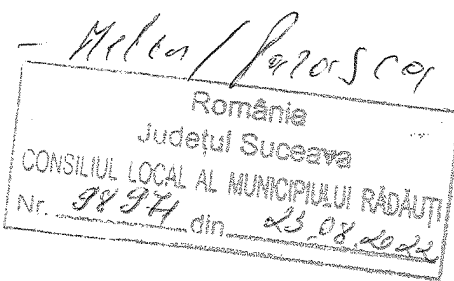 România
Județul Suceava
CONSILIUL LOCAL AL MUNICIPIULUI RĂDĂUȚI
Nr. 98971 din 23.08.2022